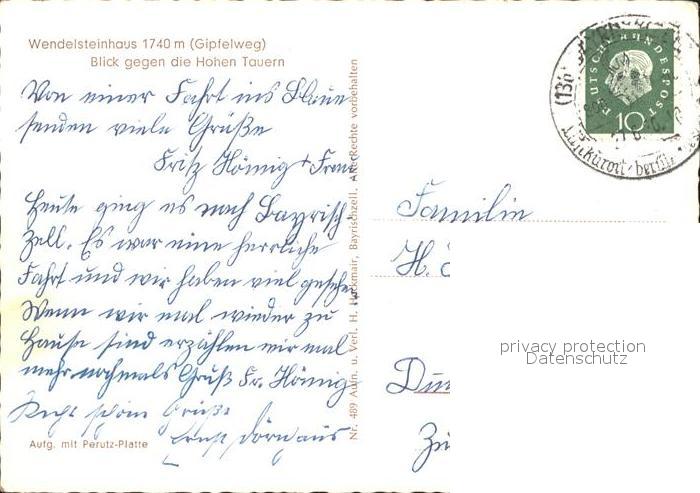 Wendelsteinhaus 1740 m (Gipfelweg)
Blick gegen die Hohen Tauern
Von einer Fahrt ins Blaue
senden viele Grüße
Fritz Hönig + Frau
Heute ging es nach Bayrisch-
Zell. Es war eine herrliche
Fahrt und wir haben viel gesehen
Wenn wir mal wieder zu
Hause sind erzählen wir mal
mehr nochmals Gruß Fr. Hönig
Recht schöne Grüße
Ernst
Aufg. mit Perutz-Platte
Nr. 489 Aufn. u. Verl. H. Hackmair, Bayrischzell. Alle Rechte vorbehalten
DEUTSCHE BUNDESPOST
10
(13b)
Luftkurort
Familie
H.
privacy protection
Datenschutz